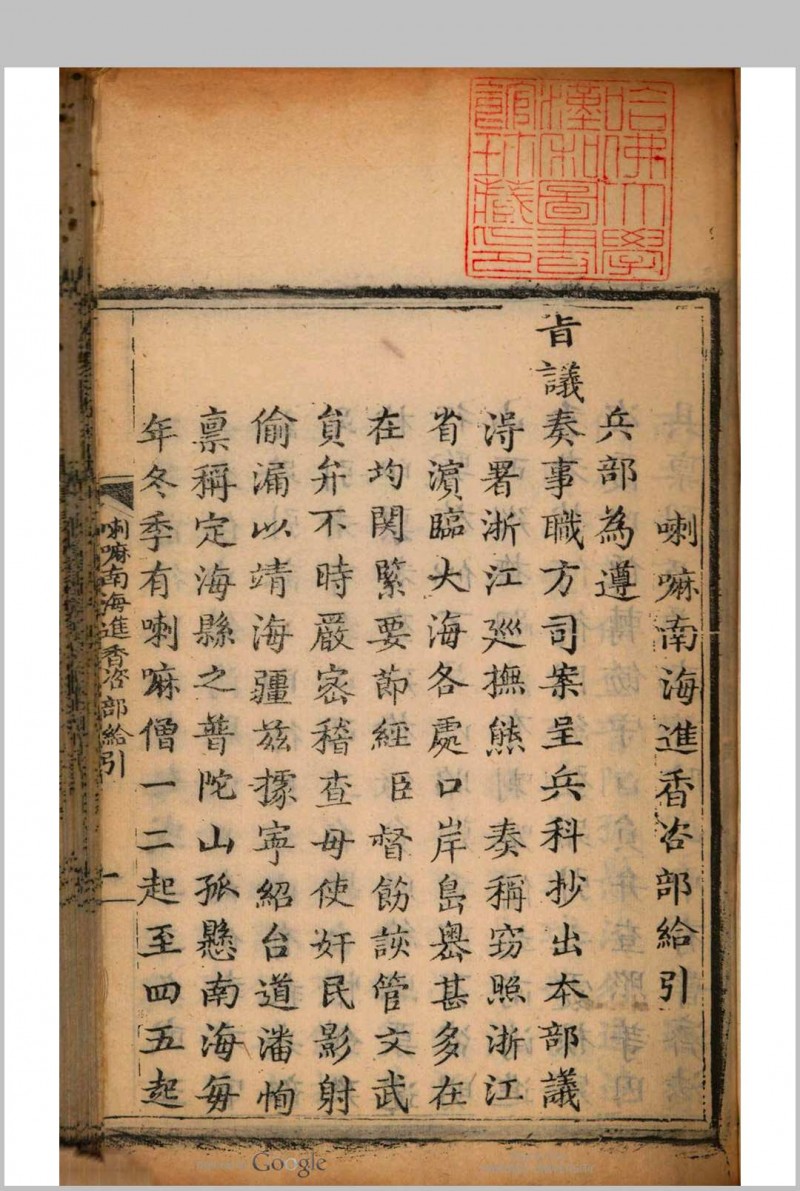 哈佛大學
漢和圖書
館珍藏印
喇嘛南海進香咨部給引
兵部為遵
旨議奏事職方司案呈兵科抄出本部議
淂署浙江廵撫熊 奏稱窃照浙江
省濵臨大海各處口岸島嶴甚多在
在均関緊要節經臣督飭該管文武
貟弁不時嚴宻稽查毋使奸民影射
偷漏以靖海疆兹㨿寜紹台道潘恂
禀稱定海縣之普陀山孤懸南海毎
年冬季有喇嘛僧一二起至四五起
喇嘛南海進香咨部給引
二
Google